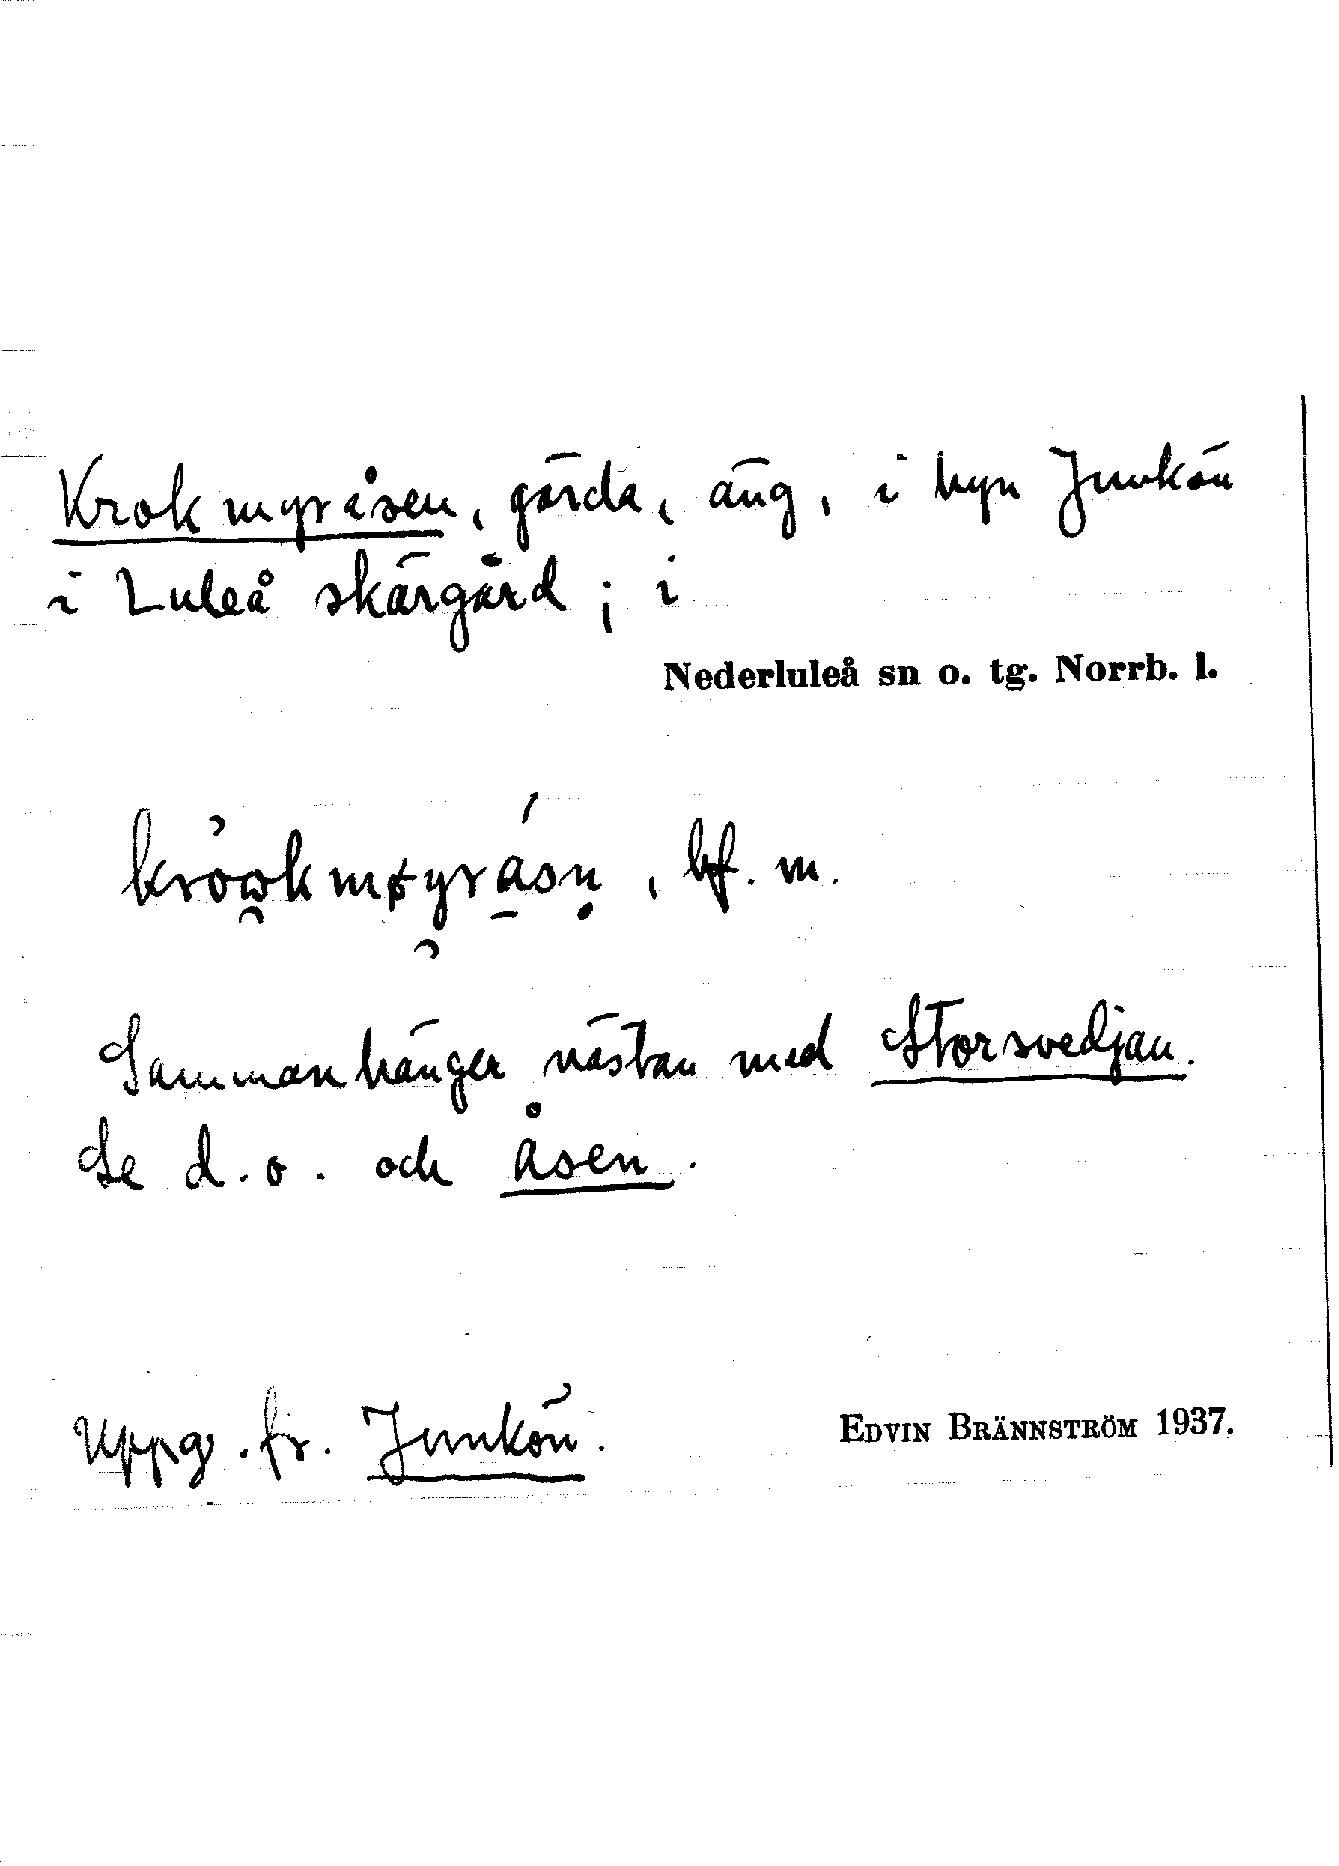 Krokmyråsen, gärda, äng, i byn Junkön
i Luleå skärgård; i
Nederluleå sn o. tg. Norrb. l.
, bf. m.
Sammanhänger nästan med Storsvedjan.
Se d. o. och åsen.
Uppg. fr. Junkön.
EDVIN BRÄNNSTRÖM 1937.